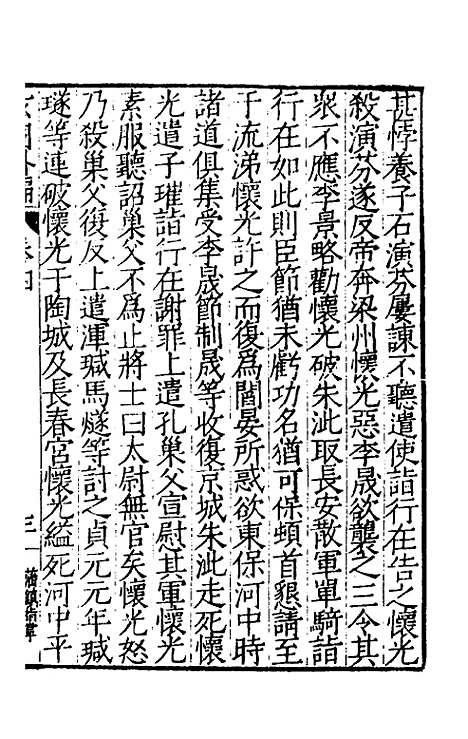 甚悖養子石演芬屢諫不聽遣使詣行在告之懷光
殺演芬遂反帝奔梁州懷光惡李晟欲襲之三令其
衆不應李景略勸懷光破朱泚取長安散軍單騎詣
行在如此則臣節猶未虧功名猶可保頓首懇請至
于流涕懷光許之而復爲閻晏所惑欲東保河中時
諸道俱集受李晟節制晟等收復京城朱泚走死懷
光遣子璀詣行在謝罪上遣孔巢父宣慰其軍懷光
素服聽詔巢父不爲止將士曰太尉無官矣懷光怒
乃殺巢父復反上遣渾瑊馬燧等討之貞元元年瑊
燧等連破懷光于陶城及長春宮懷光縊死河中平
卷四
三